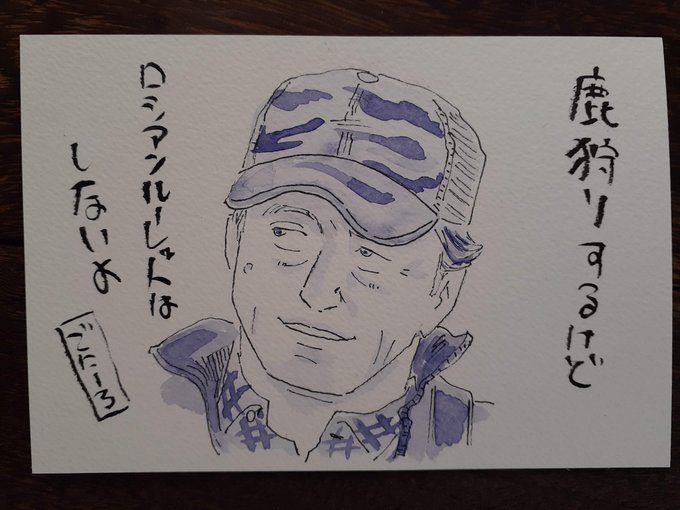 鹿狩りするけど
ロシアンルーレットは
しないよ